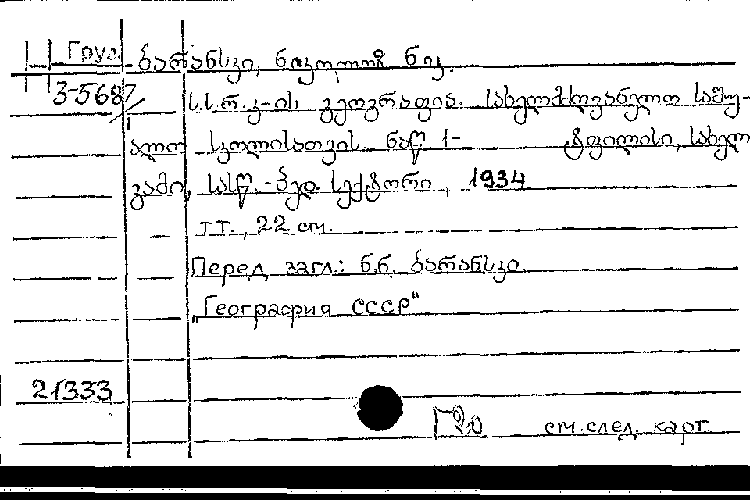 Груз. ბარანსკი, ნიკოლოზ ნიკ.
3-5687
ს.ს.რ.კ-ის გეოგრაფია. სახელმძღვანელო საშუ-
ალო სკოლისათვის. ნაწ. 1- ტფილისი, სახელ-
გამი, სასწ.-პედ. სექტორი, 1934
тт., 22 см.
Перед загл.: ნ.ნ. ბარანსკი
„География СССР"
21333
см. след. карт.